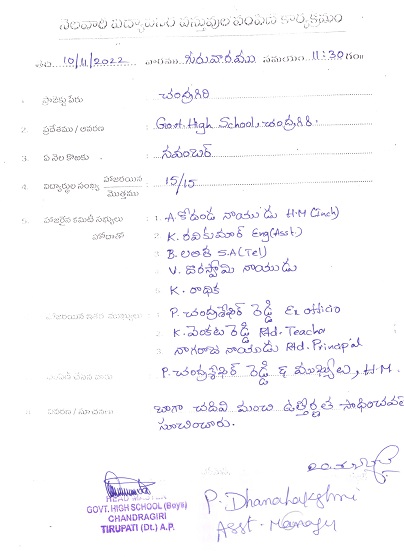 నెలవారి విద్యార్థుల వస్తువుల పంపిణి కార్యక్రమం
తేది 10/11/2022 వారము గురువారము సమయం 11:30 గం॥
1. ప్రాజెక్టు పేరు : చంద్రగిరి
2. ప్రదేశము / ఆవరణ : Govt High School, చంద్రగిరి.
3. ఏ నెల కొరకు : నవంబర్
4. విద్యార్థుల సంఖ్య హాజరయిన / మొత్తము : 15/15
5. హాజరైన కమిటీ సభ్యులు : 1. A. కోదండ నాయుడు H.M (Inch)
హోదాతో 2. K. రవికుమార్ Eng (Asst.)
3. B. లలిత S.A (Tel)
4. V. దొరస్వామి నాయుడు
5. K. రాధిక
హాజరయిన ఇతర ముఖ్యులు : 1. P. చంద్రశేఖర్ రెడ్డి Ex officio
2. K. వెంకట రెడ్డి Rtd. Teacher
3. నాగరాజ నాయుడు Rtd. Principal
పంపిణి చేసిన వారు : P. చంద్రశేఖర్ రెడ్డి & ముఖ్యులు, H.M.
8. వివరణ / సూచనలు : బాగా చదివి మంచి ఉత్తీర్ణత సాధించవలె
సూచించారు.
HEAD MASTER
GOVT. HIGH SCHOOL (Boys)
CHANDRAGIRI
TIRUPATI (Dt.) A.P.
P. Dhanalakshmi
Asst. Manager